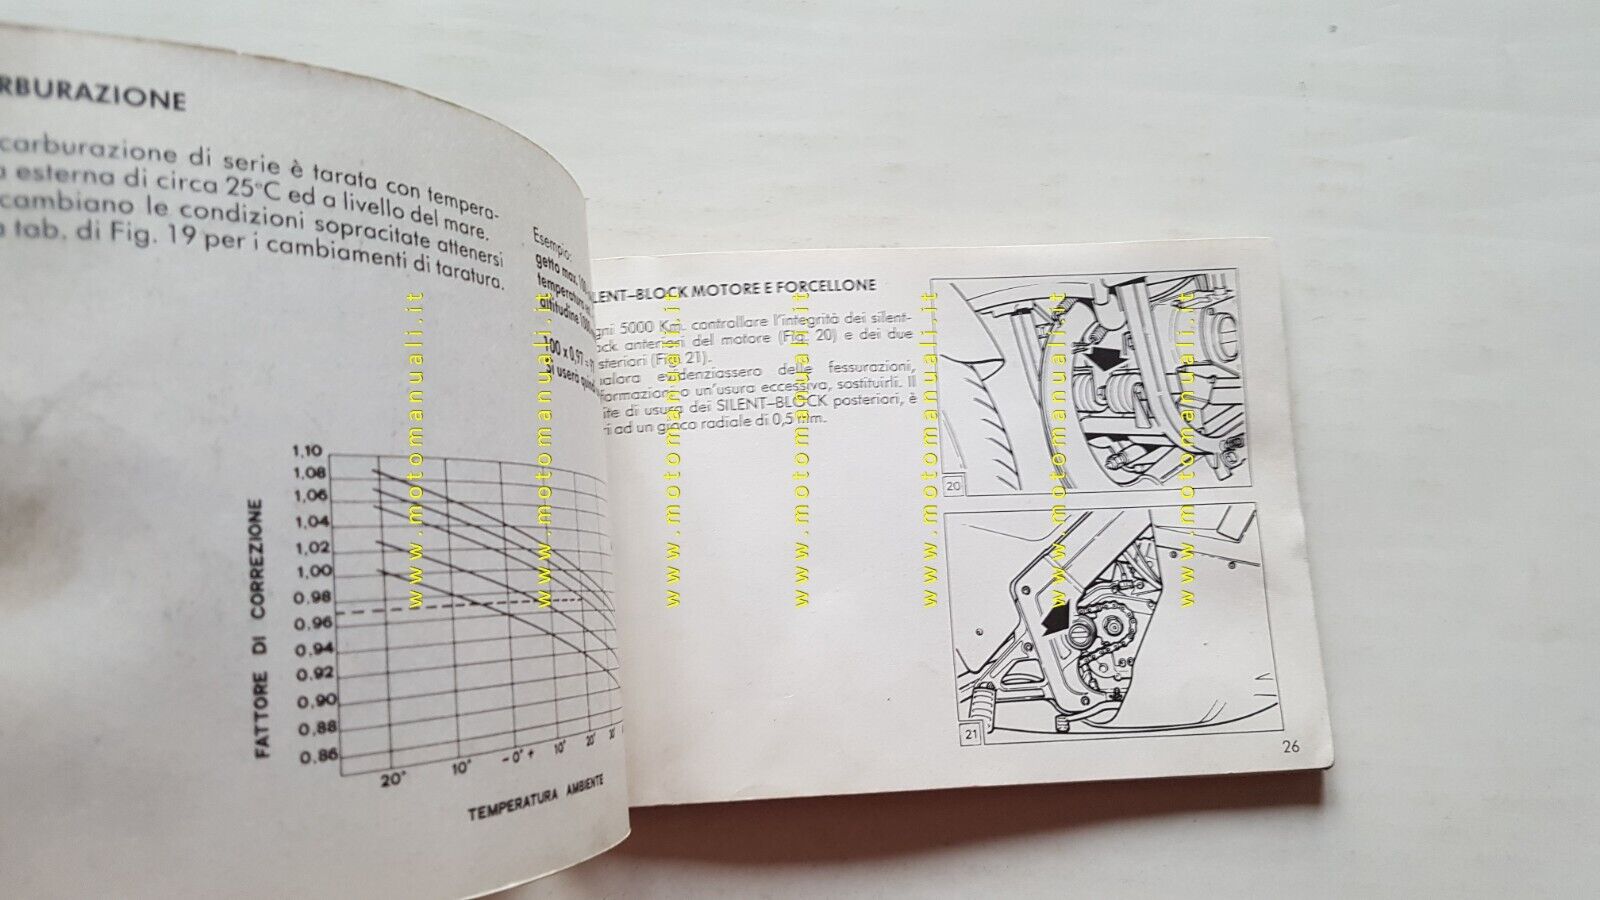 RBURAZIONE
carburazione di serie è tarata con tempera-
a esterna di circa 25°C ed a livello del mare.
cambiano le condizioni sopracitate attenersi
a tab. di Fig. 19 per i cambiamenti di taratura.
Esempio:
getto max. 100
temperatura
altitudine
100 x 0,97 =
Si userà
FATTORE DI CORREZIONE
1,10
1,08
1,06
1,04
1,02
1,00
0,98
0,96
0,94
0,92
0,90
0,88
0,86
20° 10° -0°+ 10° 20° 30°
TEMPERATURA AMBIENTE
ILENT-BLOCK MOTORE E FORCELLONE
gni 5000 Km. controllare l'integrità dei silent-
ock anteriori del motore (Fig. 20) e dei due
steriori (Fig. 21).
ualora evidenziassero delle fessurazioni,
formazioni o un'usura eccessiva, sostituirli. Il
ite di usura dei SILENT-BLOCK posteriori, è
ri ad un gioco radiale di 0,5 mm.
20
21
26
www.motomanuali.it
www.motomanuali.it
www.motomanuali.it
www.motomanuali.it
www.motomanuali.it
www.motomanuali.it
www.motomanuali.it